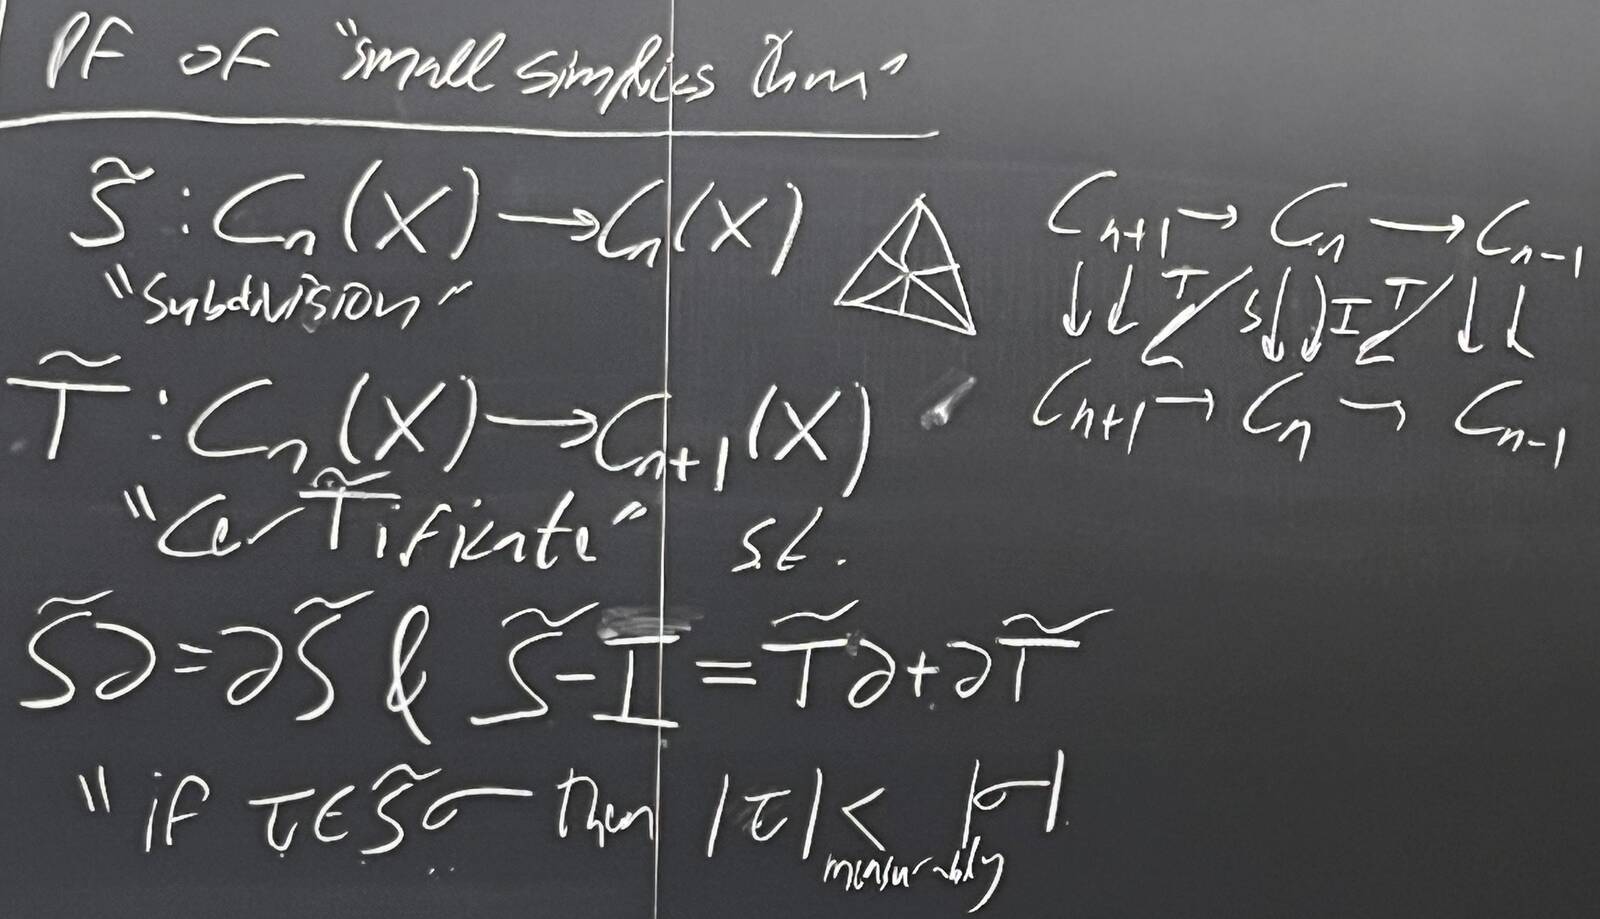 PF OF "small simplices thm"
S̃ : Cₙ(X) → Cₙ(X)
"Subdivision"
T̃ : Cₙ(X) → Cₙ₊₁(X)
"CerT̃ificate" s.t.
S̃∂ = ∂S̃ & S̃ - I = T̃∂ + ∂T̃
"if τ ∈ S̃σ then |τ| < |σ|
measurably
Cₙ₊₁ → Cₙ → Cₙ₋₁
↓ ↓ T ↙ S ↓ ↓ I T ↙ ↓ ↓
Cₙ₊₁ → Cₙ → Cₙ₋₁